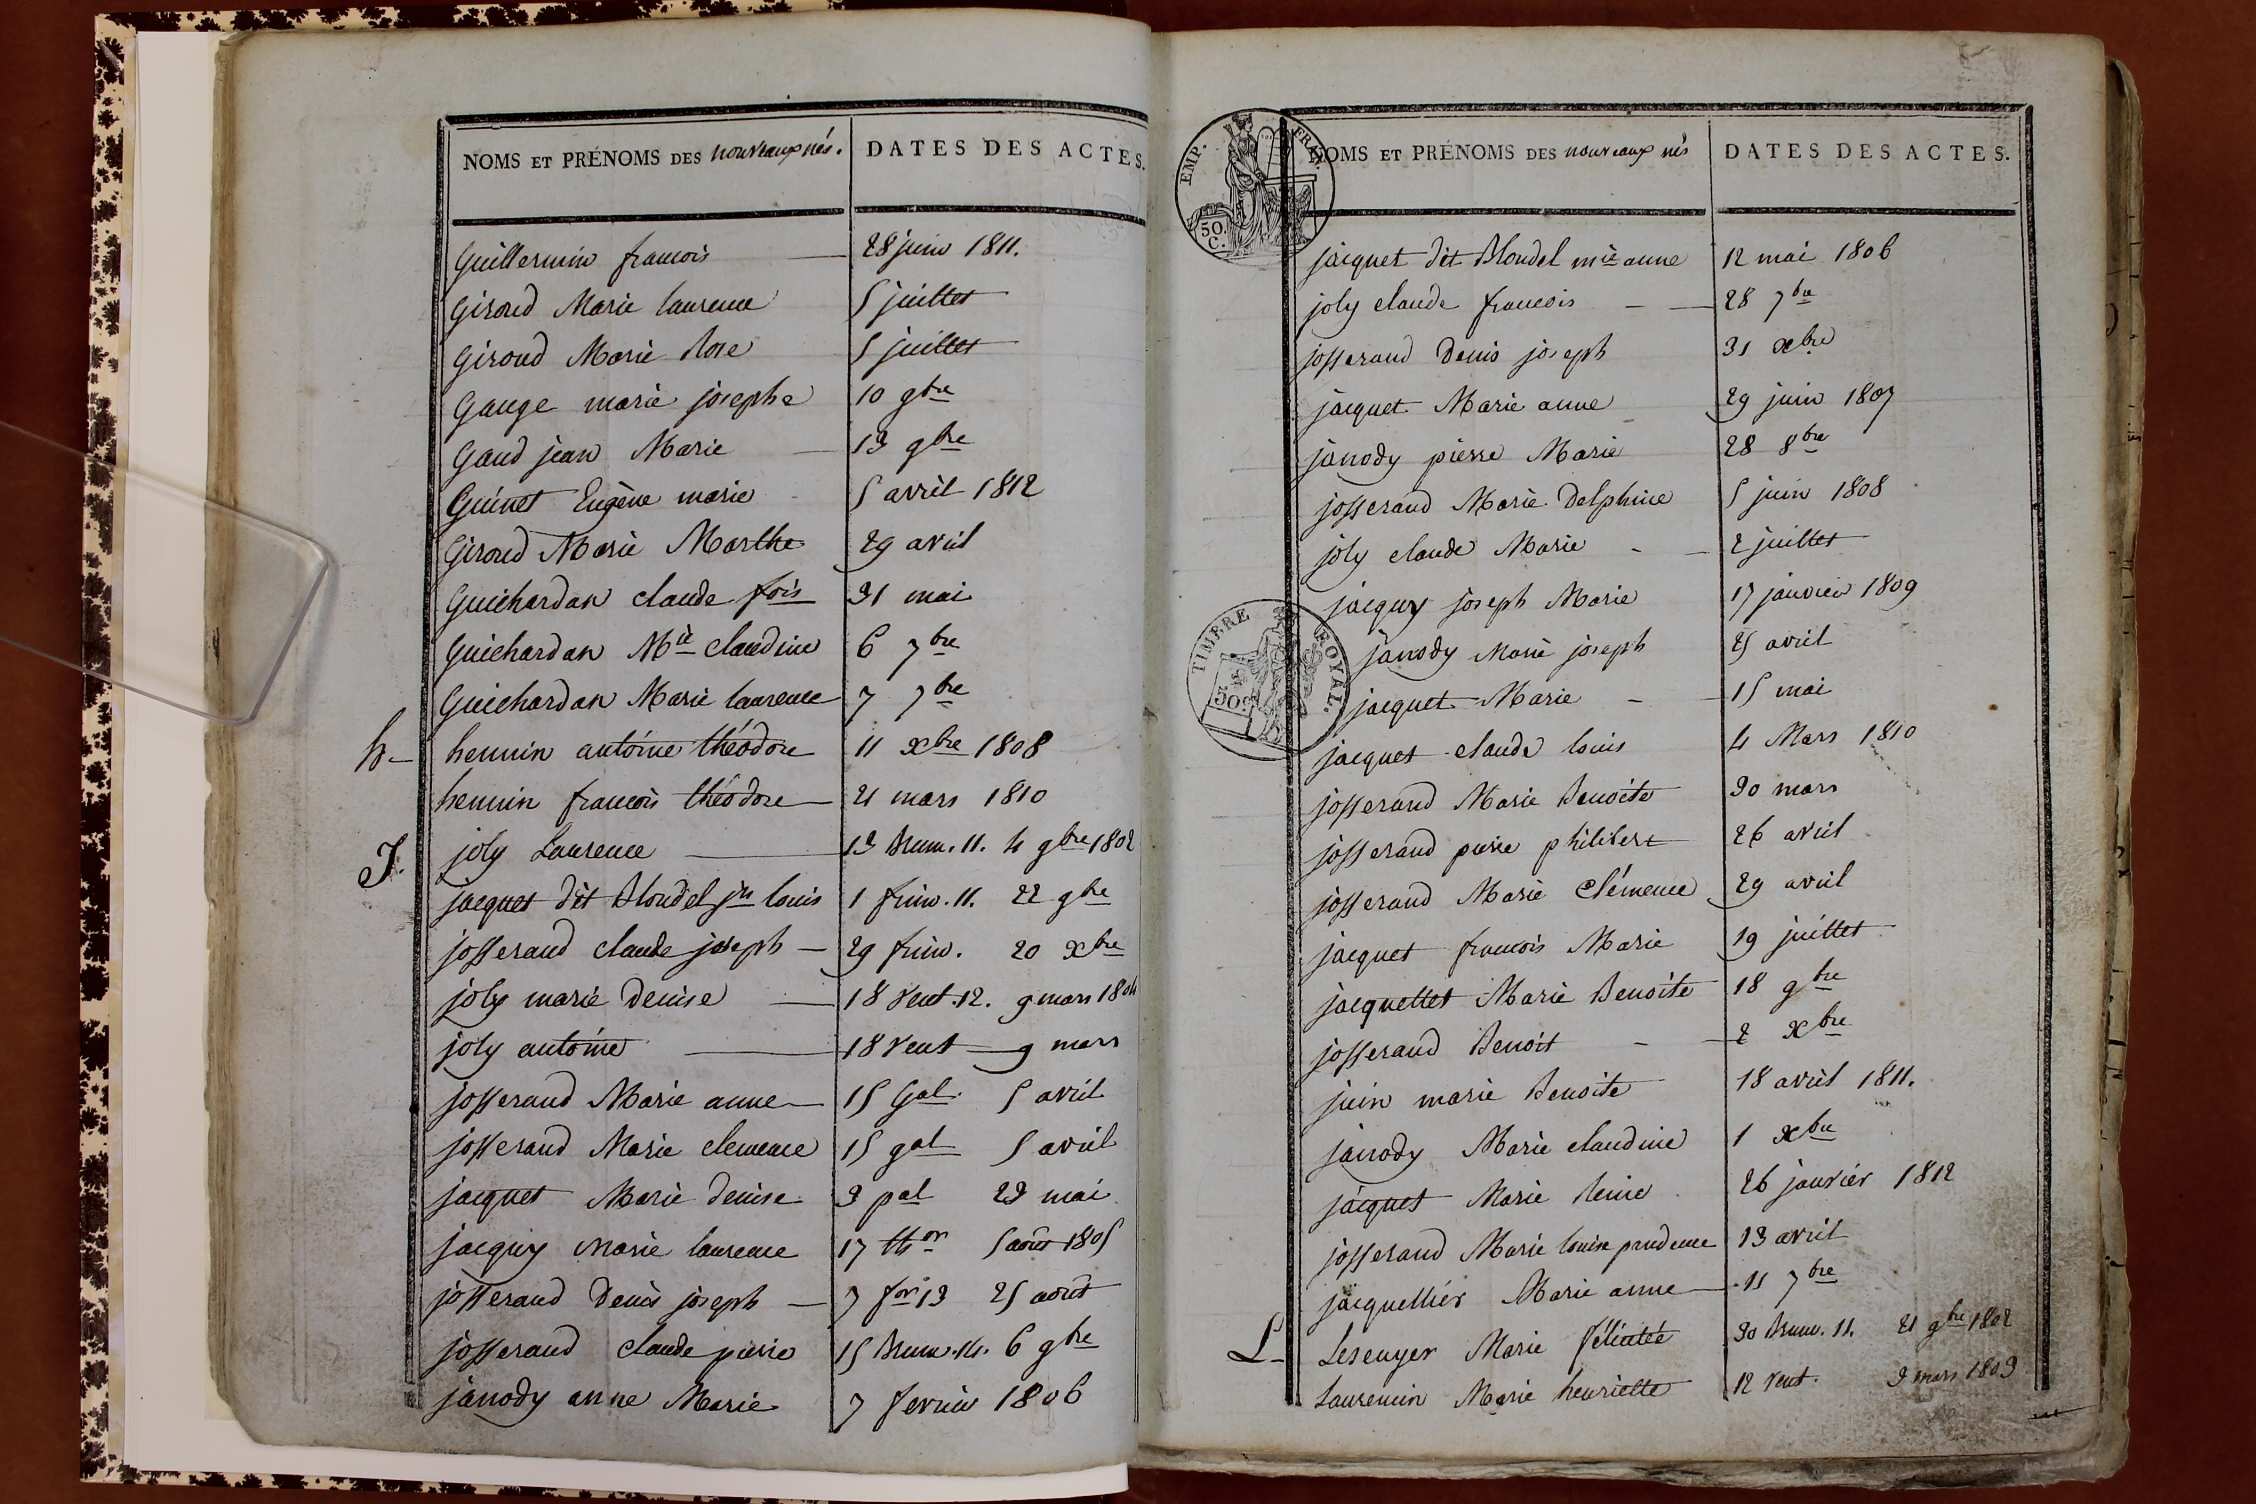 NOMS ET PRÉNOMS DES nouveaux nés. DATES DES ACTES.
Guillermin francois 28 juin 1811.
Giroud Marie laurence 5 juillet
Giroud Marie Rose 5 juillet
Gauge marie josephe 10 9bre
Gaud jean Marie 13 9bre
Guinet Eugène marie 5 avril 1812
Giroud Marie Marthe 29 avril
Guichardan claude fois 31 mai
Guichardan Mie Claudine 6 7bre
Guichardan Marie laurence 7 7bre
h- hennin antoine théodore 11 xbre 1808
hennin francois théodore 21 mars 1810
J. joly Laurence 13 Brum. 11. 4 9bre 1802
jacquet dit Blondel jn louis 1 frim. 11. 22 9bre
josserand claude joseph 29 frim. 20 xbre
joly marie Denise 18 vent. 12. 9 mars 1804
joly antoine 18 vent 9 mars
josserand Marie anne 15 Gal. 5 avril
josserand Marie clemence 15 gal 5 avril
jacquet Marie Denise 3 pal 23 mai
jacquy Marie laurence 17 thor 5 août 1805
josserand Denis joseph 7 for 13 25 août
josserand Claude pierre 15 Brum. 14. 6 9bre
janody anne Marie 7 fevrier 1806
EMP. FRAN.
50. C.
NOMS ET PRÉNOMS DES nouveaux nés DATES DES ACTES.
jacquet dit Blondel mie anne 12 mai 1806
joly claude francois 28 7bre
josserand Denis joseph 31 xbre
jacquet Marie anne 29 juin 1807
janody pierre Marie 28 8bre
josserand Marie Delphine 5 juin 1808
joly claude Marie 2 juillet
jacquy joseph Marie 17 janvier 1809
TIMBRE ROYAL.
50c
janody Marie joseph 25 avril
jacquet Marie 15 mai
jacquet claude louis 4 Mars 1810
josserand Marie Benoite 30 mars
josserand pierre philibert 26 avril
josserand Marie Clémence 29 avril
jacquet francois Marie 19 juillet
jacquettet Marie Benoite 18 9bre
josserand Benoit 2 xbre
juin marie Benoite 18 avril 1811.
janody Marie claudine 1 xbre
jacquet Marie Reine 26 janvier 1812
josserand Marie louise prudence 13 avril
jacquellier Marie anne 11 7bre
L- Lescuyer Marie félicitée 30 Brum. 11. 21 9bre 1802
Laurencin Marie henriette 12 vent. 3 mars 1803